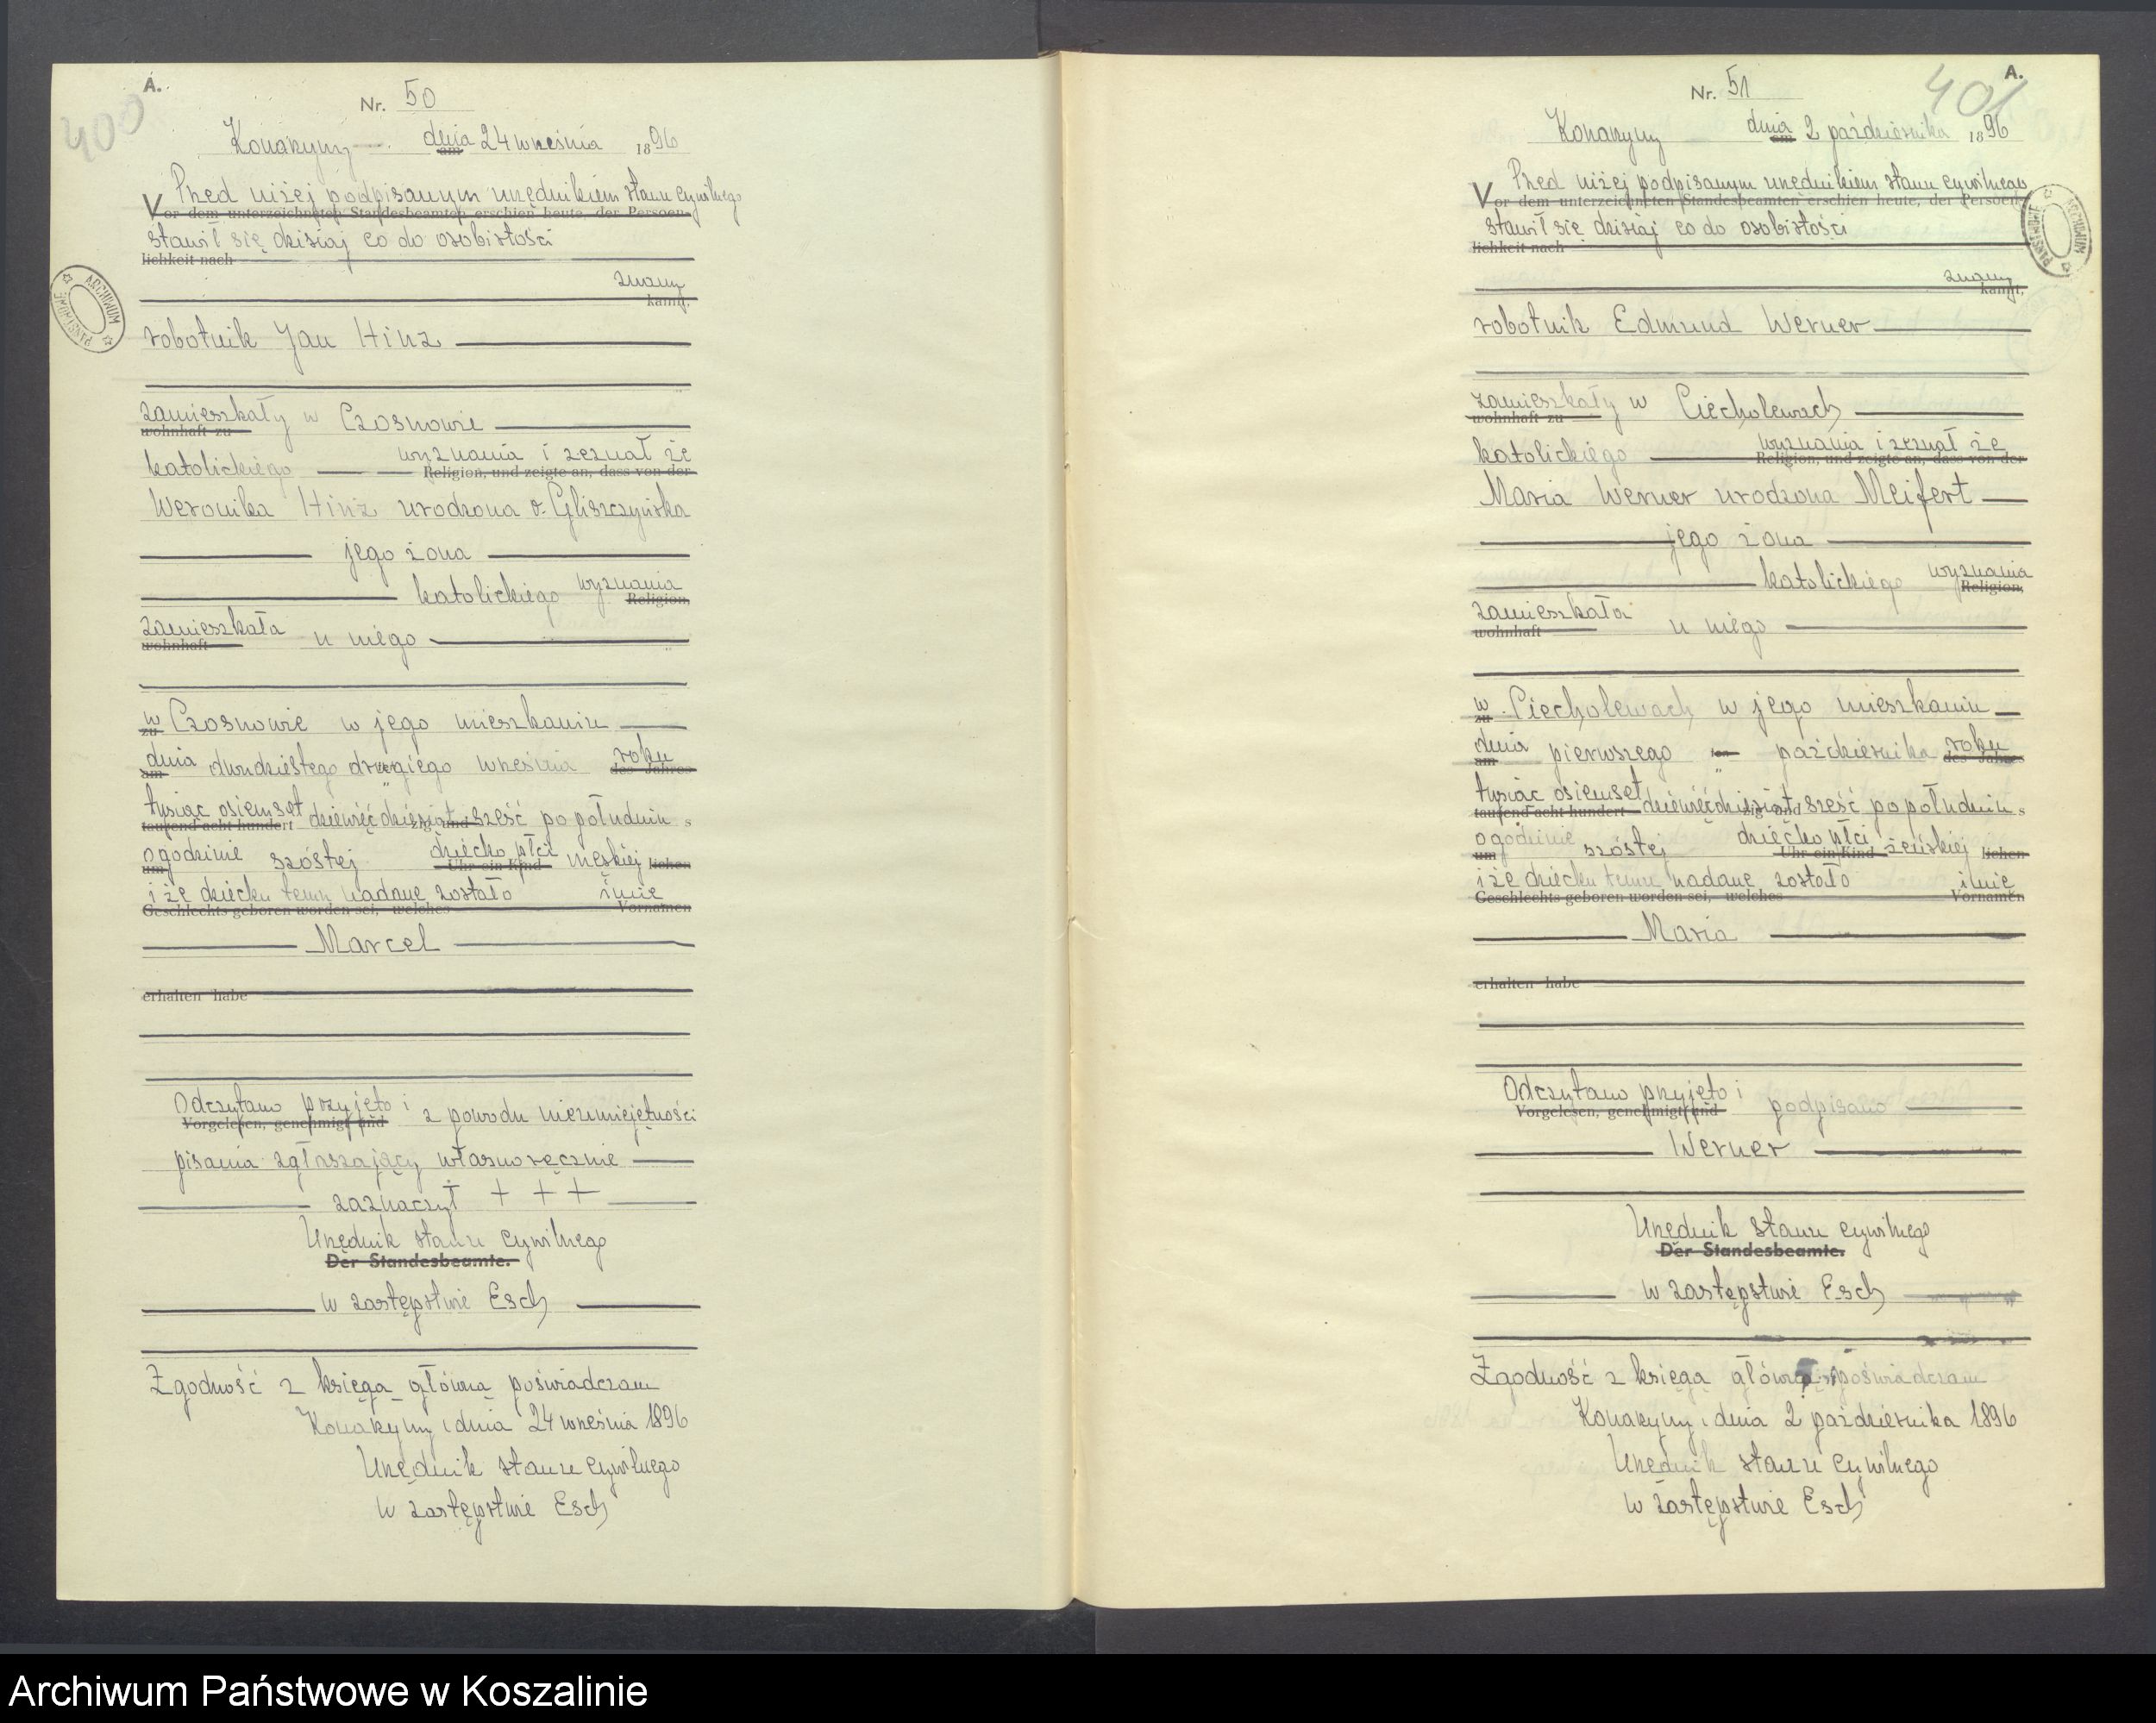 A.
400
Nr. 50
Konarzyny dnia am 24 września 1896
Przed niżej podpisanym urzędnikiem stanu cywilnego
Vor dem unterzeichneten Standesbeamten erschien heute, der Persoen-
stawił się dzisiaj co do osobistości
lichkeit nach
znany
kannt,
robotnik Jan Hinz
zamieszkały w Czosnowie
wohnhaft zu
katolickiego wyznania i zeznał że
Religion, und zeigte an, dass von der
Weronika Hinz urodzona v. Gliszczyńska
jego żona
katolickiego wyznania
Religion,
zamieszkała u niego
wohnhaft
w Czosnowie w jego mieszkaniu
zu
dnia dwudziestego drugiego września roku
am des Jahres
tysiąc osiemset dziewięćdziesiąt sześć po południu s
tausend acht hundert zig und
o godzinie szóstej dziecko płci męskiej
um Uhr ein Kind lichen
i że dziecku temu nadane zostało imie
Geschlechts geboren worden sei, welches Vornamen
Marcel
erhalten habe
Odczytano przyjęto i z powodu nieumiejętności
Vorgelesen, genehmigt und
pisania zgłaszający własnoręcznie
zaznaczył + + +
Urzędnik stanu cywilnego
Der Standesbeamte.
w zastępstwie Esch
Zgodność z księgą główną poświadczam
Konarzyny dnia 24 września 1896
Urzędnik stanu cywilnego
w zastępstwie Esch
ARCHIWUM PAŃSTWOWE
A.
401
Nr. 51
Konarzyny dnia am 2 października 1896
Przed niżej podpisanym urzędnikiem stanu cywilnego
Vor dem unterzeichneten Standesbeamten erschien heute, der Persoen-
stawił się dzisiaj co do osobistości
lichkeit nach
znany
kannt,
robotnik Edmund Werner
zamieszkały w Ciecholewach
wohnhaft zu
katolickiego wyznania i zeznał że
Religion, und zeigte an, dass von der
Maria Werner urodzona Meifert
jego żona
katolickiego wyznania
Religion,
zamieszkała u niego
wohnhaft
w Ciecholewach w jego mieszkaniu
zu
dnia pierwszego października roku
am ten des Jahres
tysiąc osiemset dziewięćdziesiąt sześć po południu s
tausend acht hundert zig und
o godzinie szóstej dziecko płci żeńskiej
um Uhr ein Kind lichen
i że dziecku temu nadane zostało imie
Geschlechts geboren worden sei, welches Vornamen
Maria
erhalten habe
Odczytano przyjęto i podpisano
Vorgelesen, genehmigt und
Werner
Urzędnik stanu cywilnego
Der Standesbeamte.
w zastępstwie Esch
Zgodność z księgą główną poświadczam
Konarzyny dnia 2 października 1896
Urzędnik stanu cywilnego
w zastępstwie Esch
ARCHIWUM PAŃSTWOWE
Archiwum Państwowe w Koszalinie